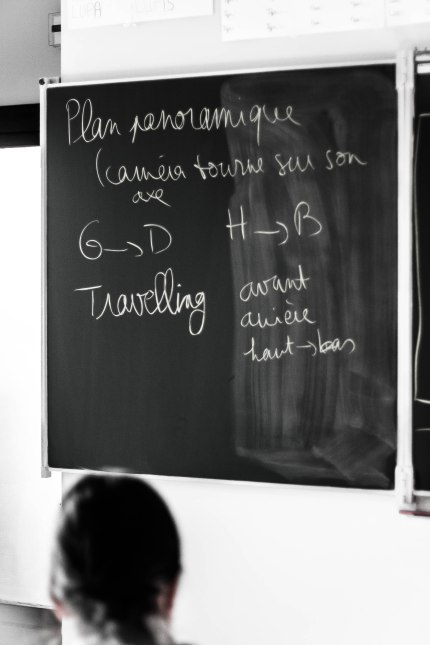 Plan panoramique
(caméra tourne sur son
axe
G→D H→B
Travelling avant
arrière
haut→bas